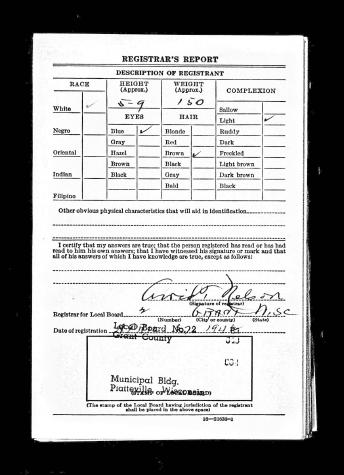 REGISTRAR'S REPORT
DESCRIPTION OF REGISTRANT
RACE
HEIGHT (Approx.)
WEIGHT (Approx.)
COMPLEXION
White ✓
5-9
150
Sallow
EYES
HAIR
Light ✓
Negro
Blue ✓
Blonde
Ruddy
Gray
Red
Dark
Oriental
Hazel
Brown ✓
Freckled
Brown
Black
Light brown
Indian
Black
Gray
Dark brown
Bald
Black
Filipino
Other obvious physical characteristics that will aid in identification
I certify that my answers are true; that the person registered has read or has had
read to him his own answers; that I have witnessed his signature or mark and that
all of his answers of which I have knowledge are true, except as follows:
Nelson
(Signature of registrar)
Registrar for Local Board 2 Grant Wisc
(Number) (City or county) (State)
Date of registration
Local Board No. 2
Grant County
Municipal Bldg.
Platteville, Wisconsin
(STAMP OF LOCAL BOARD)
(The stamp of the Local Board having jurisdiction of the registrant
shall be placed in the above space)